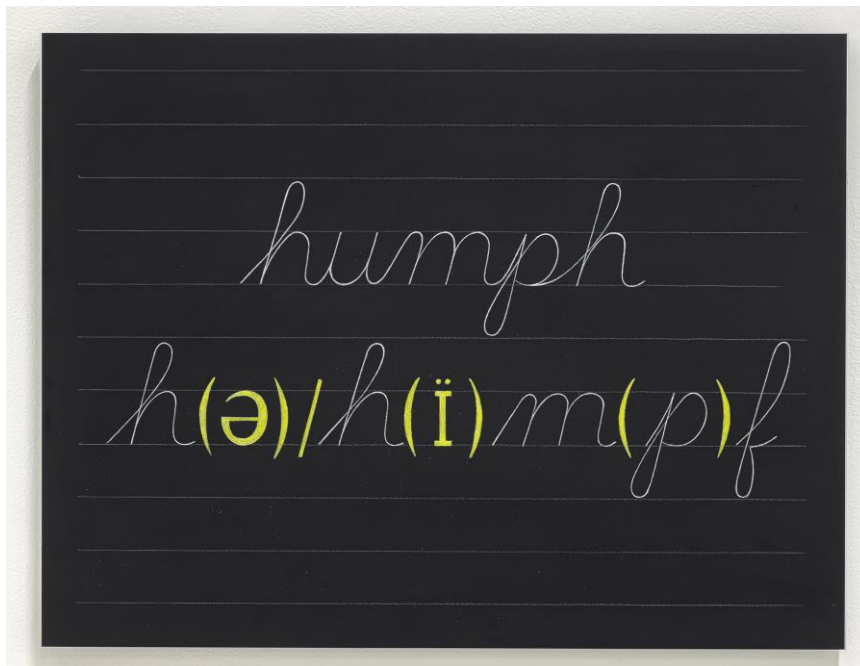 humph
h(ə)/h(ɪ̈)m(p)f